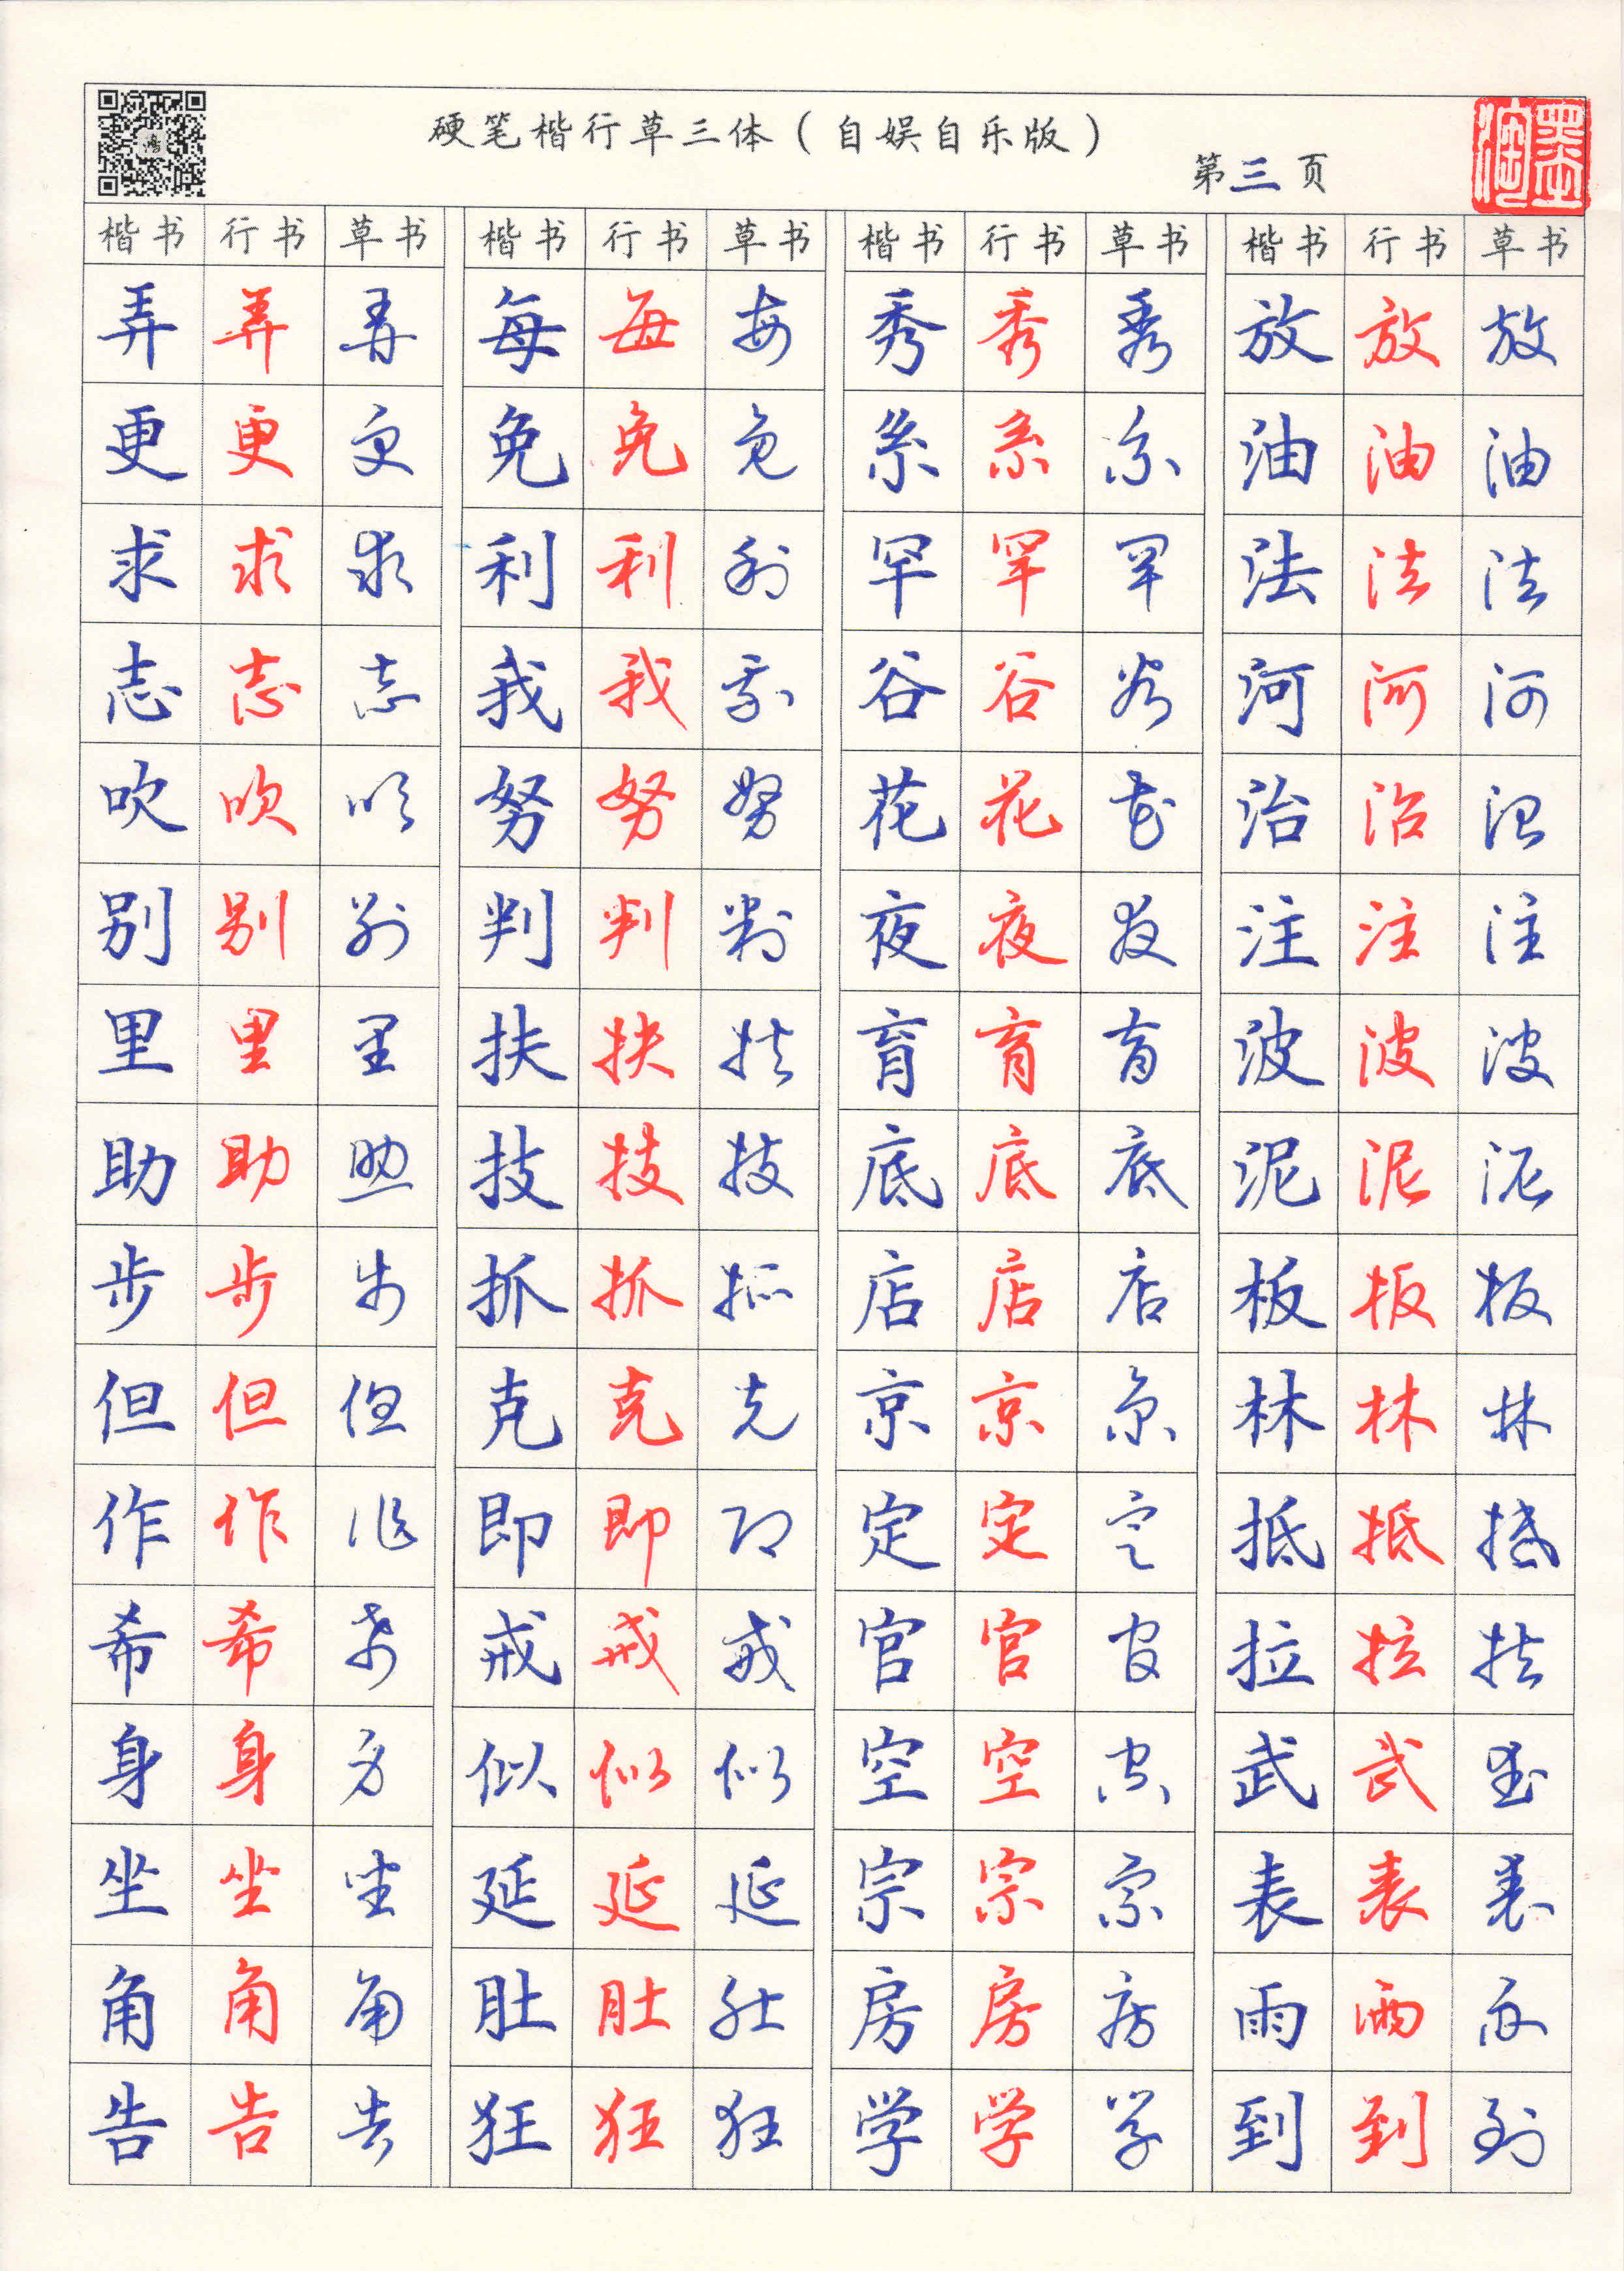 硬笔楷行草三体（自娱自乐版）
第三页
墨海
楷书 行书 草书 楷书 行书 草书 楷书 行书 草书 楷书 行书 草书
弄 弄 弄 每 每 每 秀 秀 秀 放 放 放
更 更 更 免 免 免 系 系 系 油 油 油
求 求 求 利 利 利 罕 罕 罕 法 法 法
志 志 志 我 我 我 谷 谷 谷 河 河 河
吹 吹 吹 努 努 努 花 花 花 治 治 治
别 别 别 判 判 判 夜 夜 夜 注 注 注
里 里 里 扶 扶 扶 育 育 育 波 波 波
助 助 助 技 技 技 底 底 底 泥 泥 泥
步 步 步 抓 抓 抓 店 店 店 板 板 板
但 但 但 克 克 克 京 京 京 林 林 林
作 作 作 即 即 即 定 定 定 抵 抵 抵
希 希 希 戒 戒 戒 官 官 官 拉 拉 拉
身 身 身 似 似 似 空 空 空 武 武 武
坐 坐 坐 延 延 延 宗 宗 宗 表 表 表
角 角 角 肚 肚 肚 房 房 房 雨 雨 雨
告 告 告 狂 狂 狂 学 学 学 到 到 到